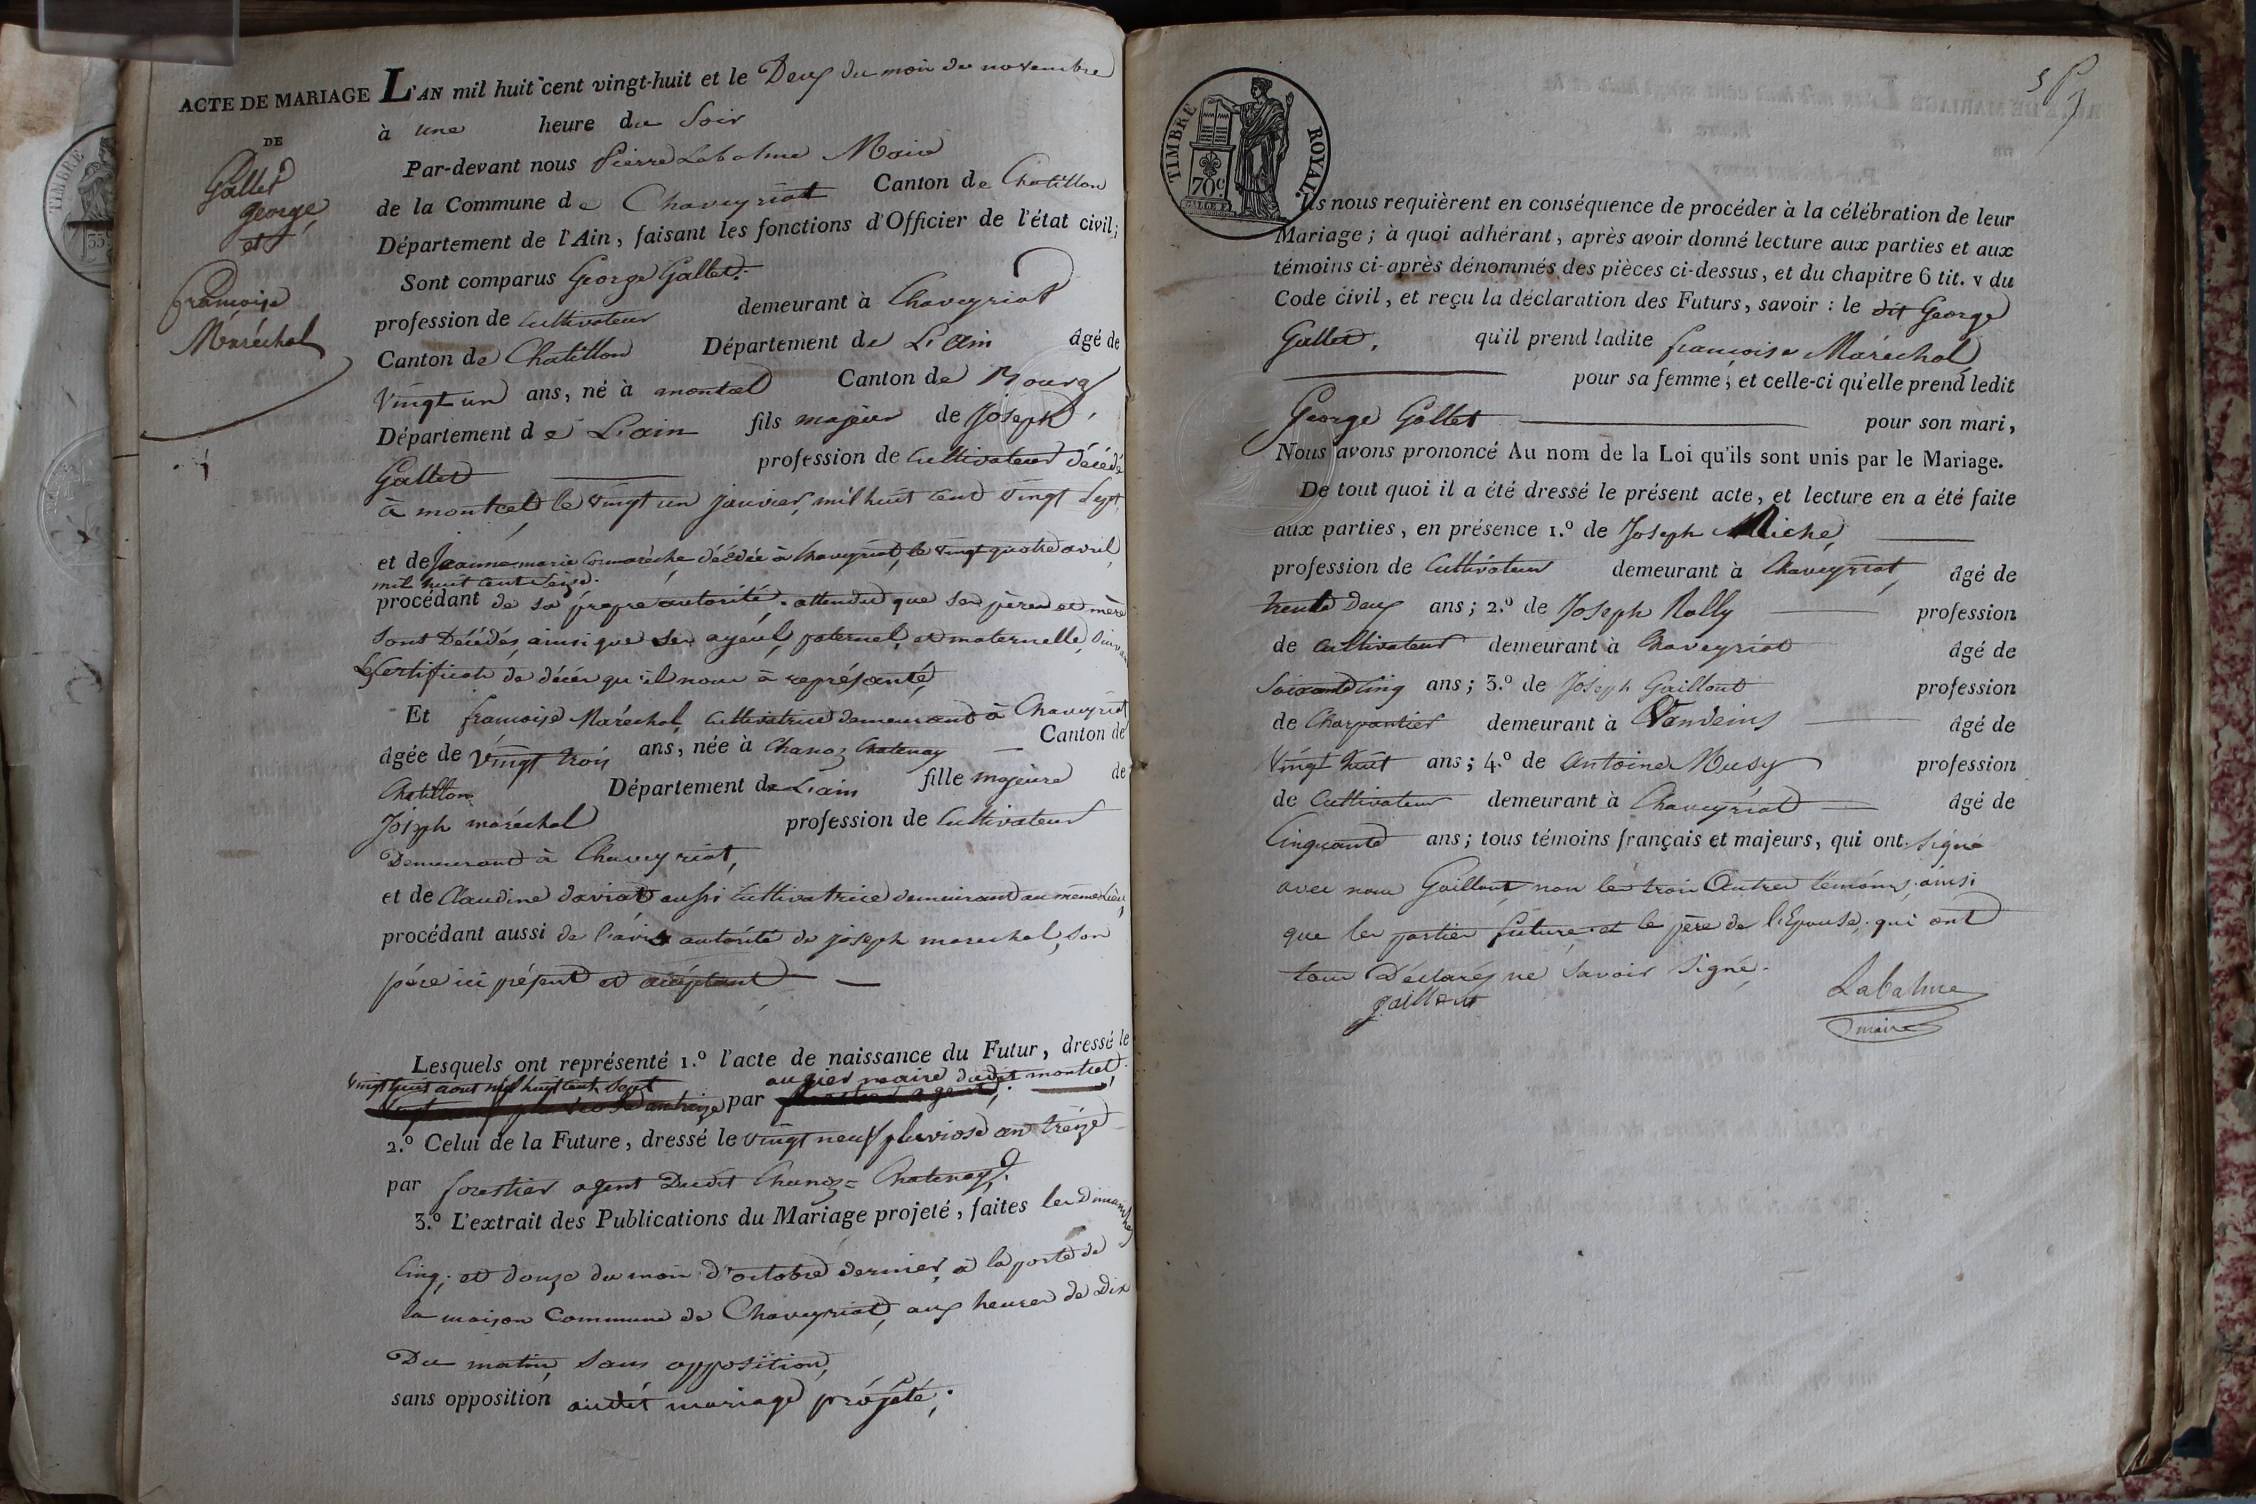 ACTE DE MARIAGE
DE
Gallet
george
et
françoise
Maréchal
TIMBRE
35
L'AN mil huit cent vingt-huit et le Deux du mois de novembre
à une heure du Soir
Par-devant nous Pierre Labalme Maire
de la Commune de Chaveyriat Canton de Chatillon
Département de l'Ain, faisant les fonctions d'Officier de l'état civil;
Sont comparus George Gallet.
profession de Cultivateur demeurant à Chaveyriat
Canton de Chatillon Département de L'ain âgé de
Vingt un ans, né à montcel Canton de Bourg
Département de L'ain fils majeur de Joseph
Gallet profession de Cultivateur décédé
à montcel le vingt un janvier, mil huit cent vingt Sept,
et de Jeanne marie décédée à Chaveyriat, le vingt quatre avril
mil huit cent Seize.
procédant de sa propre autorité. attendu que ses père et mère
sont Décédés, ainsi que ses ayeul, paternel, et maternelle, suivant
Le Certificat de décès qu'il nous à représanté,
Et françoise Maréchal, Cultivatrice demeurant à Chaveyriat
âgée de Vingt trois ans, née à Chanoz Chatenay Canton de
Chatillon Département de L'ain fille majeure de
Joseph maréchal profession de Cultivateur
Demeurant à Chaveyriat,
et de Claudine daviat aussi Cultivatrice demeurant au même Lieu,
procédant aussi de l'avis autorité de joseph marechal, son
père ici présent et acceptant
Lesquels ont représenté 1.º l'acte de naissance du Futur, dressé le
vingt huit aout mil huit cent Sept par maire dudit montcel
2.º Celui de la Future, dressé le vingt neuf pluviose an treize
par forestier agent Dudit Chanoz = Chatenay.
3.º L'extrait des Publications du Mariage projeté, faites les Dimanches
Cinq, et douze du mois d'octobre dernier, à la porte de
la maison Commune de Chaveyriat, aux heures de Dix
Du matin, sans opposition,
sans opposition audit mariage projeté;
TIMBRE ROYAL
70c.
Ils nous requièrent en conséquence de procéder à la célébration de leur
Mariage; à quoi adhérant, après avoir donné lecture aux parties et aux
témoins ci-après dénommés des pièces ci-dessus, et du chapitre 6 tit. v du
Code civil, et reçu la déclaration des Futurs, savoir : le dit George
Gallet, qu'il prend ladite françoise Maréchal
pour sa femme; et celle-ci qu'elle prend ledit
George Gallet pour son mari,
Nous avons prononcé Au nom de la Loi qu'ils sont unis par le Mariage.
De tout quoi il a été dressé le présent acte, et lecture en a été faite
aux parties, en présence 1.º de Joseph Miche,
profession de Cultivateur demeurant à Chaveyriat, âgé de
trente Deux ans; 2.º de Joseph Rolly profession
de Cultivateur demeurant à Chaveyriat âgé de
Soixante Cinq ans; 3.º de Joseph Gaillout profession
de Charpantier demeurant à Vandeins âgé de
Vingt huit ans; 4.º de Antoine Musy profession
de Cultivateur demeurant à Chaveyriat âgé de
Cinquante ans; tous témoins français et majeurs, qui ont signé
avec nous Gaillout, non les trois Autres témoins, ainsi
que les parties future et le père de l'Epouse, qui ont
tous Déclarés ne Savoir Signé.
gaillout
Labalme
maire